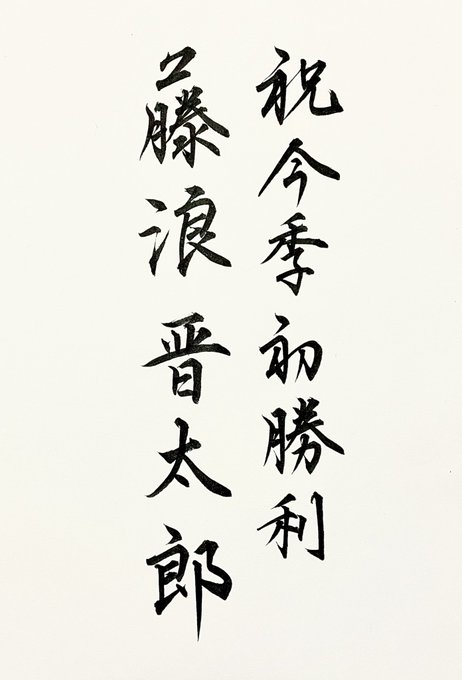 祝今季初勝利
藤浪晋太郎